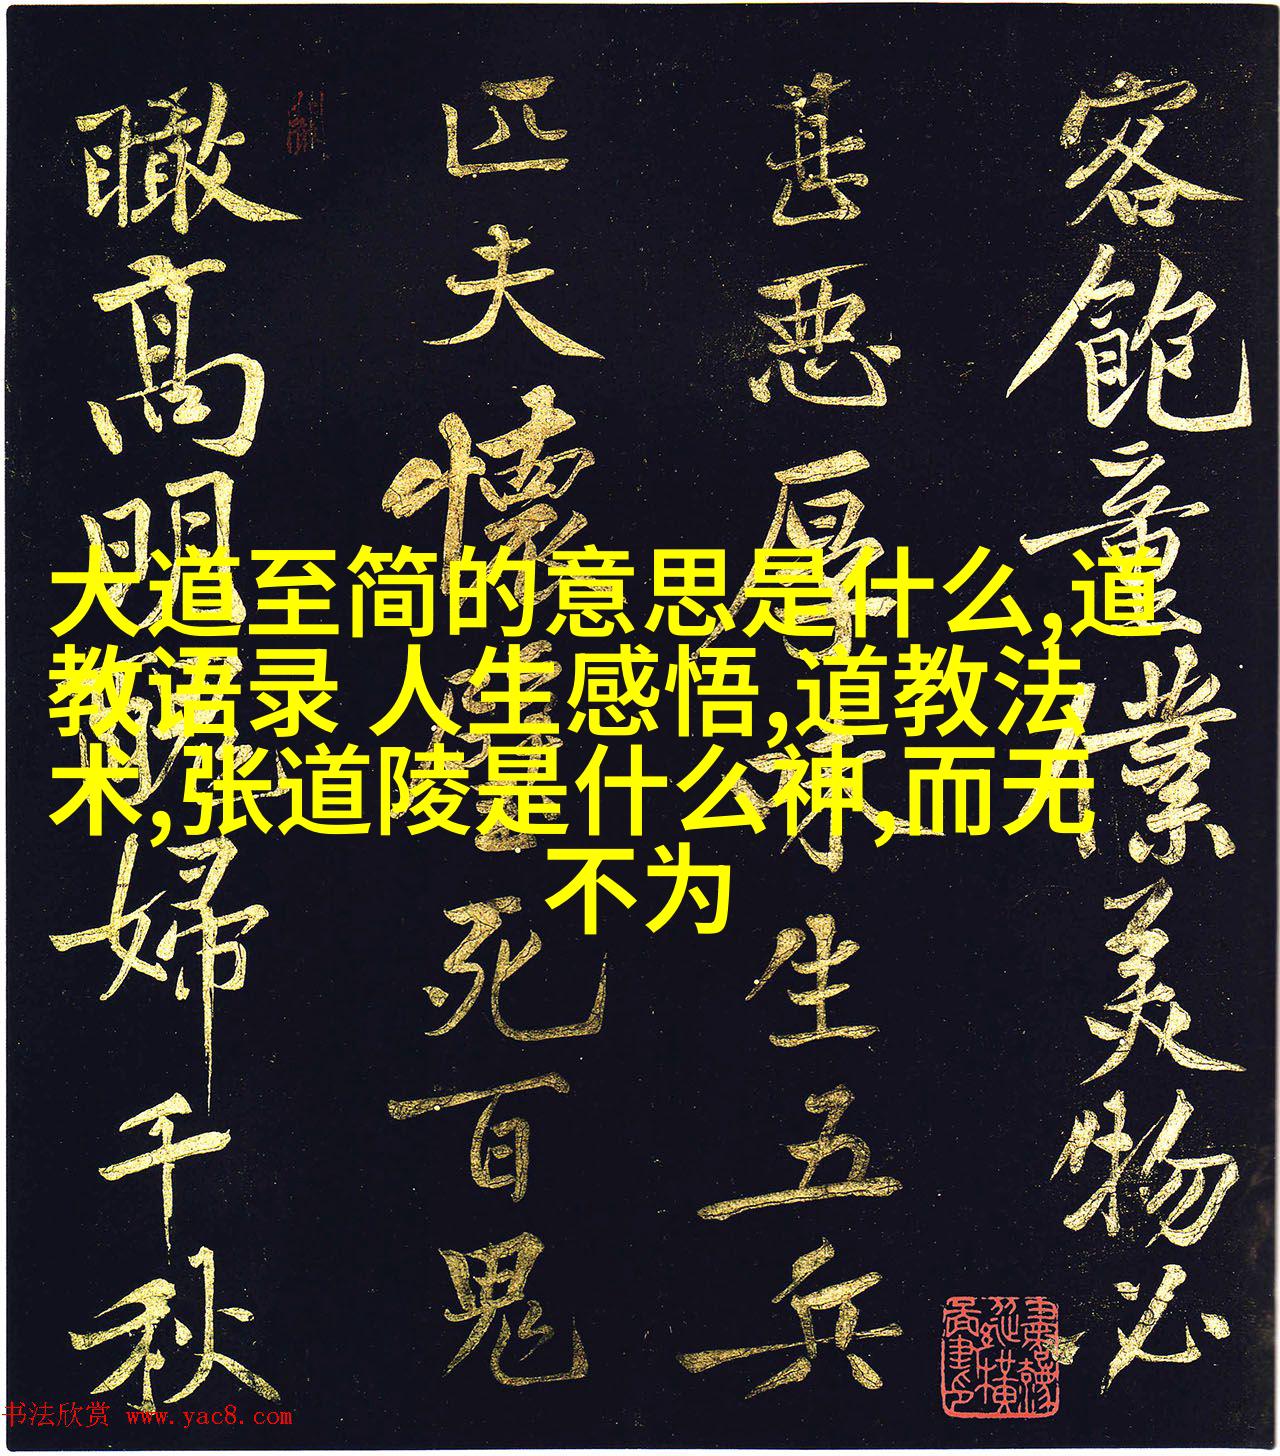 客飽童僕美物必
甚惡厚味生五兵
匹夫懷璧死百鬼
瞰高明醜婦千秋
大道至简的意思是什么,道
教语录 人生感悟,道教法
术,张道陵是什么神,而无
不为
书法欣赏 www.yac8.com